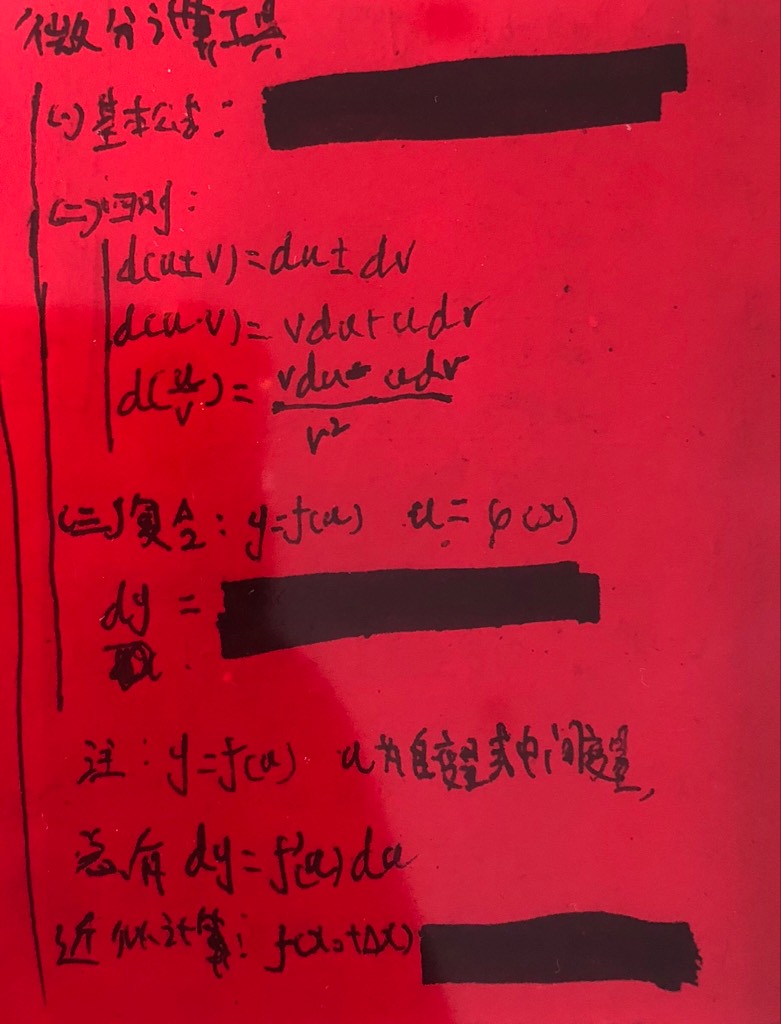 微分计算工具
(一)基本公式:
(二)四则:
d(u±v)=du±dv
d(u·v)=vdu+udv
d(u/v)=(vdu-udv)/v²
(三)复合:y=f(u) u=φ(x)
dy =
注:y=f(u) u为自变量或中间变量,
总有 dy=f'(u)du
近似计算:f(x₀+Δx)